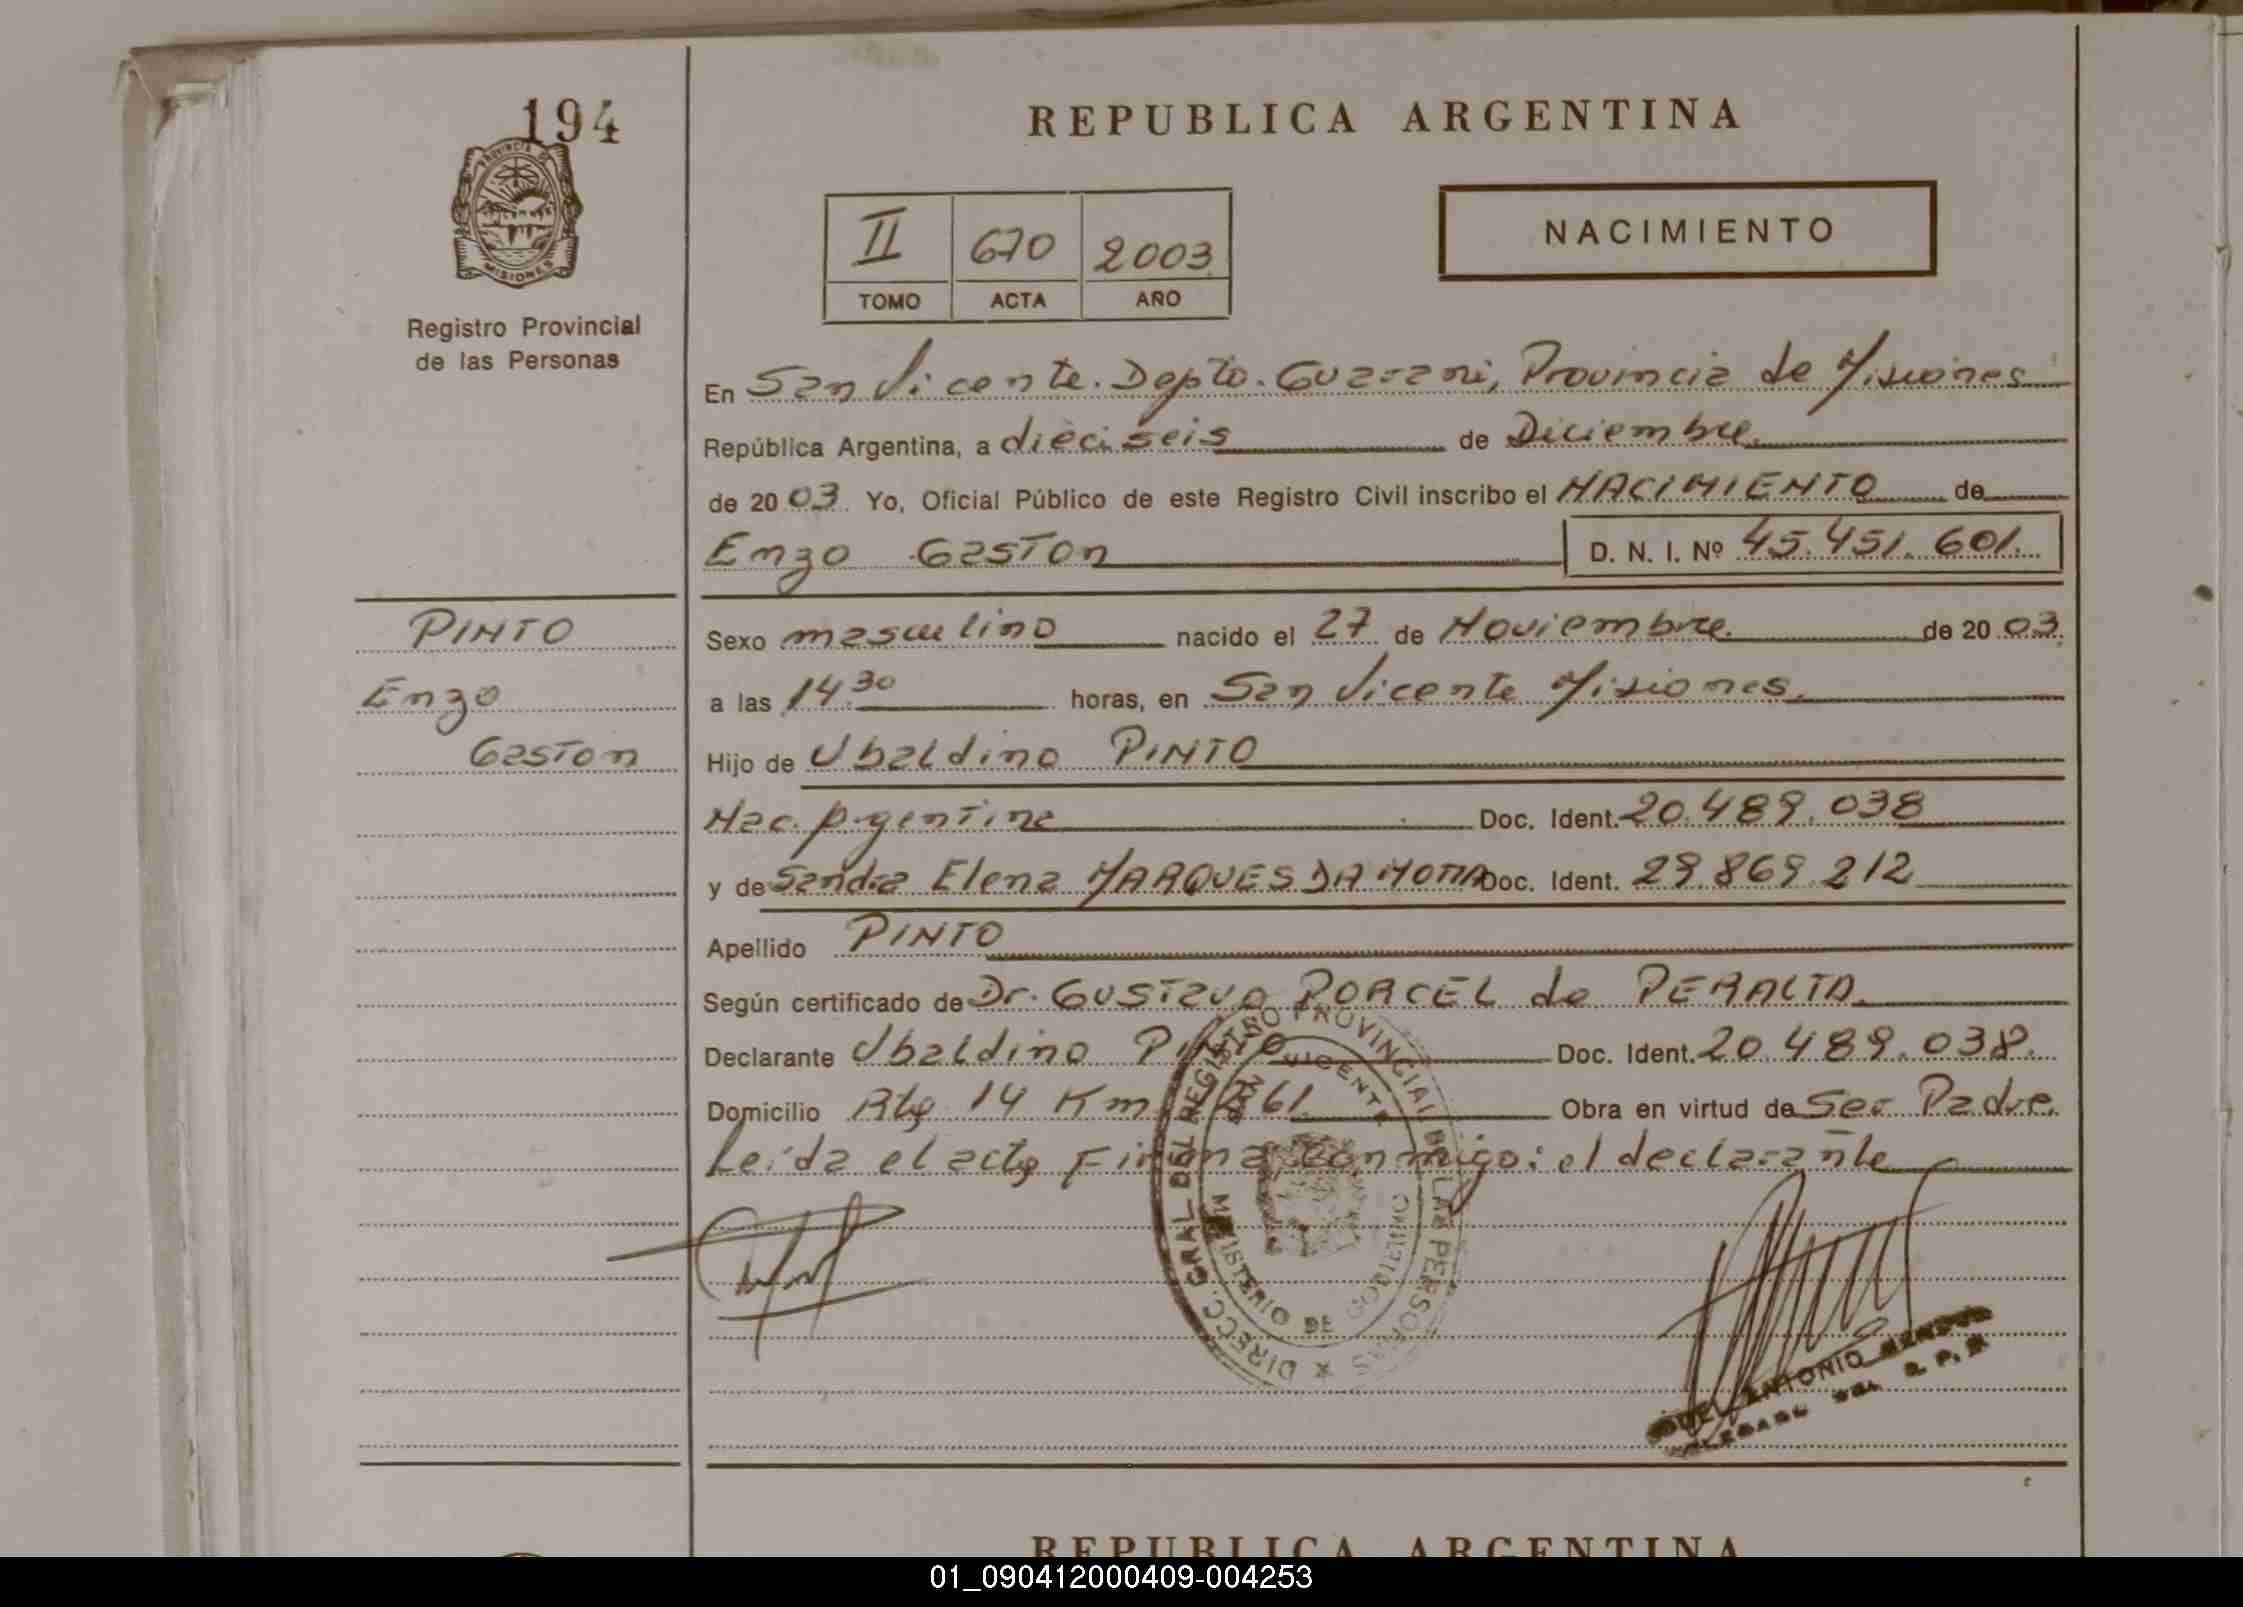 194
PROVINCIA DE
MISIONES
Registro Provincial
de las Personas
REPUBLICA ARGENTINA
II 670 2003
TOMO ACTA AÑO
NACIMIENTO
En San Vicente. Depto. Guarani, Provincia de Misiones
República Argentina, a dieciseis de Diciembre.
de 20 03. Yo, Oficial Público de este Registro Civil inscribo el NACIMIENTO de
Enzo Gaston D. N. I. Nº 45.451.601.
PINTO
Enzo
Gaston
Sexo masculino nacido el 27 de Noviembre. de 20 03.
a las 14.30 horas, en San Vicente Misiones.
Hijo de Ubaldino PINTO
Nac. Argentina Doc. Ident. 20.489.038
y de Sandra Elena MARQUES DA MOTTA Doc. Ident. 29.869.212
Apellido PINTO
Según certificado de Dr. Gustavo PORCEL de PERALTA.
Declarante Ubaldino Pinto Doc. Ident. 20.489.038.
Domicilio Rta 14 Km 1261. Obra en virtud de Ser Padre.
Leída el acta Firma conmigo: el declarante
DIRECC. GRAL. DEL REGISTRO PROVINCIAL DE LAS PERSONAS
SAN VICENTE
MISIONES
ANTONIO
R. P. P.
REPUBLICA ARGENTINA
01_090412000409-004253